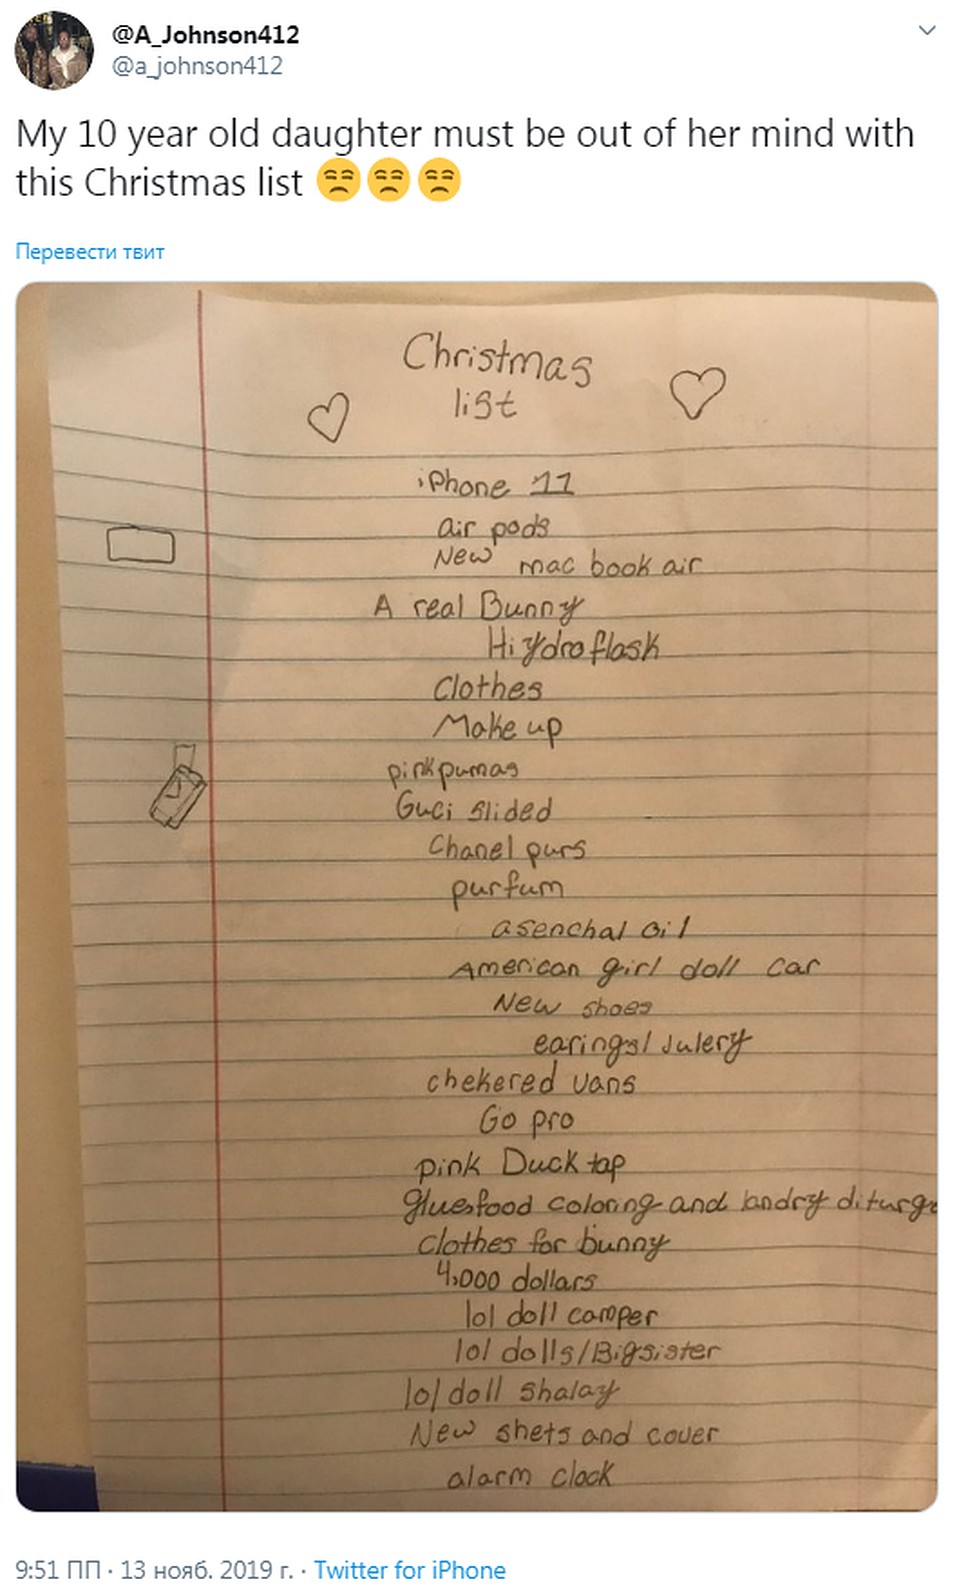 @A_Johnson412
@a_johnson412
My 10 year old daughter must be out of her mind with
this Christmas list 😒😒😒
Перевести твит
Christmas
list
iPhone 11
air pods
New mac book air
A real Bunny
Hiydro flask
Clothes
Make up
pink pumas
Guci slided
Chanel purs
purfum
asenchal oil
American girl doll car
New shoes
earings/Julery
chekered vans
Go pro
pink Duck tap
glue food coloring and landry diturge
clothes for bunny
4,000 dollars
lol doll camper
lol dolls/Bigsister
lol doll shalay
New shets and cover
alarm clock
9:51 ПП · 13 нояб. 2019 г. · Twitter for iPhone